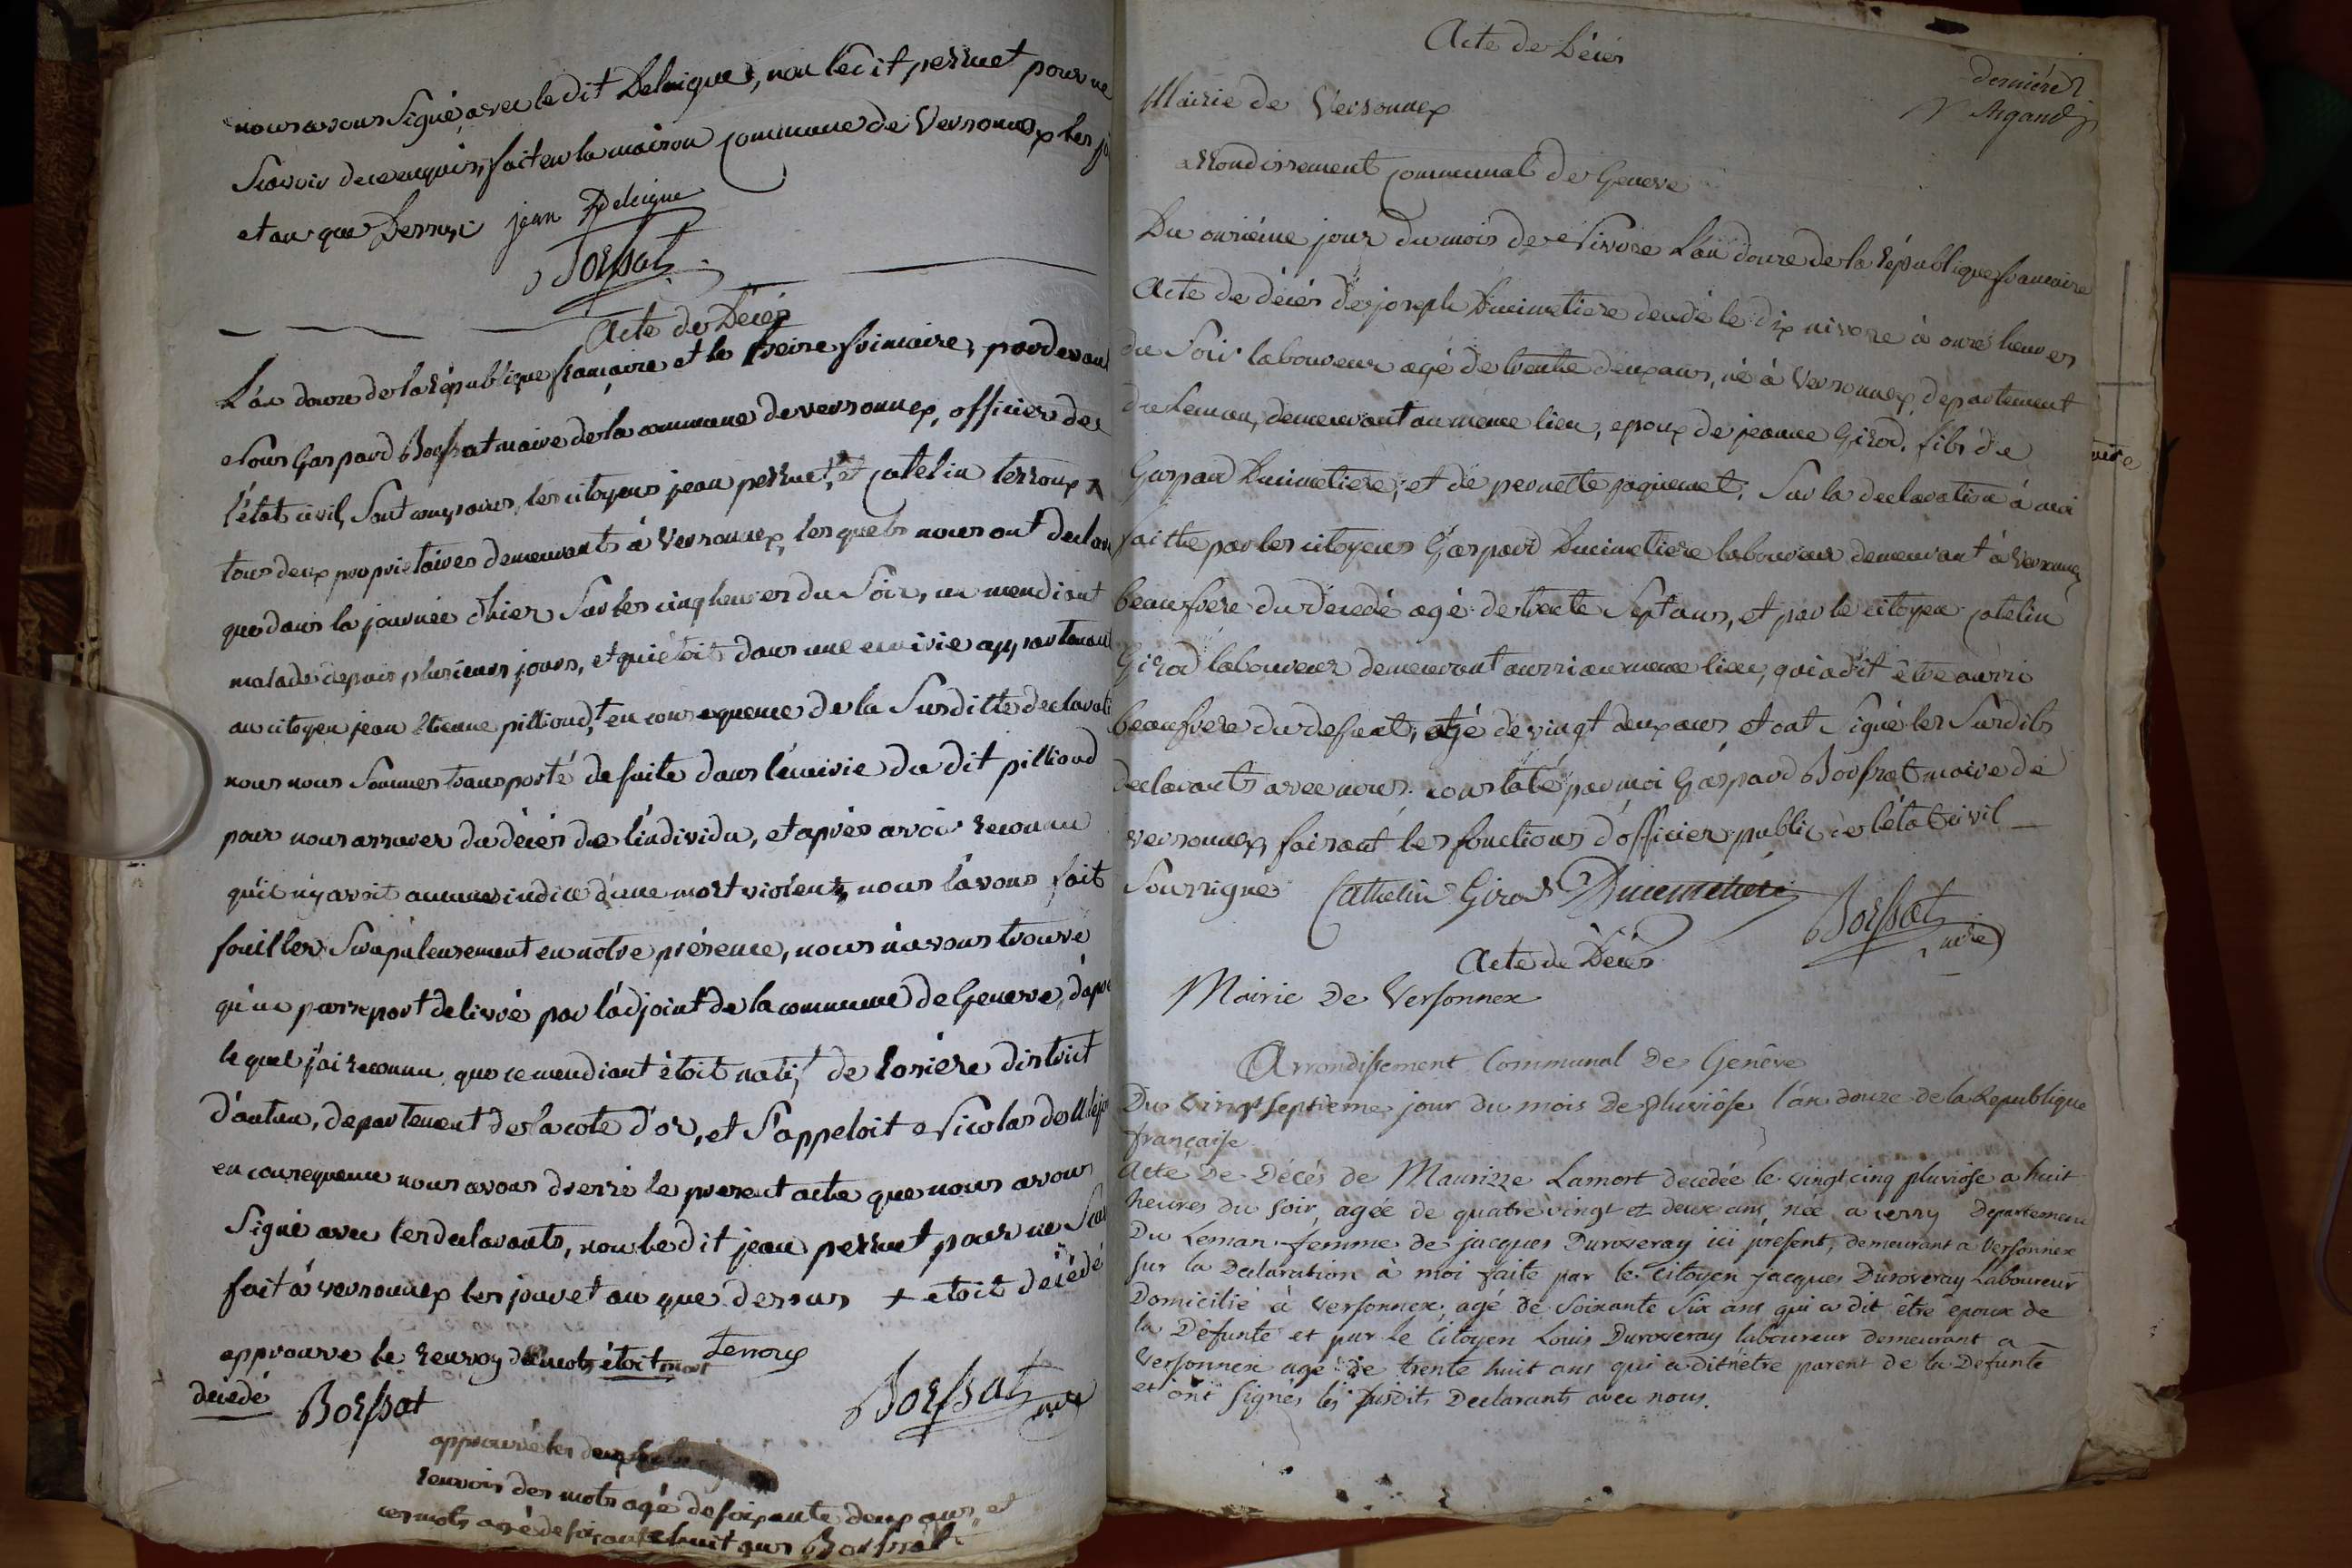 nous avons Signé avec le dit Deleigue, non le dit perruet pour ne
Scavoir de ce enquis, fait en la maison commune de Versonnex les jo
et an que Dessus jean Deleigue
Borssat
Acte de Décés
L'an douze de la république francaise et le treize frimaire, pardevant
Nous Gaspard Borssat maire de la commune de versonnex, officier de
l'état civil, Sont comparus, les citoyens jean perruet, et catelin terroux
tous deux proprietaires demeurants à Versonnex, lesquels nous ont declar
que dans la journée d'hier Sur les cinq heures du Soir, un mendiant
malade depuis plusieurs jours, et qui étoit dans une ecurie appartenant
au citoyen jean Etienne pillioud, + en consequence de la Susditte declarati
nous nous Sommes transporté de suite dans l'écurie du dit pillioud
pour nous assurer du décés de l'individu, et aprés avoir reconnu
qu'il n'y avoit aucunes indice d'une mort violente, nous l'avons fait
fouiller Scrupuleusement en notre présence, nous n'avons trouvé
qu'un passeport delivré par l'adjoint de la commune de Geneve, d'apré
le quel j'ai reconnu que ce mendiant étoit natif de losière district
d'autun, departement de la cote d'or, et S'appeloit Nicolas
en consequence nous avons dressé le present acte que nous avons
Signé avec les declarants, non le dit jean perruet pour ne Sca
fait à versonnex les jour et an que dessus + etoit decédé
approuve le renvoy des mots étoit mort Terroux
decedé Borssat Borssat mre
approuvé les deux
renvois des mots agé de soixante deux ans et
ces mots agé de soixante huit ans Borssat
Acte de Décés
derniére
Argand
Mairie de Versonnex
arrondissement communal de Geneve
Du onziéme jour du mois de Nivose L'an douze de la république francaise
Acte de décés de joseph Ducimetiere decedé le dix nivose à onze heures
du Soir laboureur agé de trente deux ans, né à Versonnex, departement
du Leman, demeurant au meme lieu, epoux de jeanne Girod, fils de
Gaspard Ducimetiere, et de pernette jaquemet. Sur la declaration à moi
faitte par les citoyens Gaspard Ducimetiere laboureur demeurant à Versonnex
beaufrere du decedé agé de trente Sept ans, et par le citoyen catelin
Girod laboureur demeurant aussi au meme lieu, qui a dit être aussi
beaufrere du defunt, agé de vingt deux ans et ont Signé les Susdits
declarants avec nous. constaté par moi Gaspard Borssat maire de
versonnex, faisant les fonctions d'officier public de l'état civil
Soussigné Cathelin Girod Ducimetiere Borssat mre
Acte de Décés
Mairie De Versonnex
Arrondissement Communal de Genêve
Du vingt Septieme jour du mois De pluviose l'an douze de la Republique
française
Acte De Décés de Maurizze Lamort decedée le vingt cinq pluviose a huit
heures du soir, agée de quatre vingt et deux ans, née a verny Departement
Du Leman femme de jacques Duroveray ici present, demeurant a Versonnex
sur la Declaration à moi faite par le Citoyen Jacques Duroveray Laboureur
Domicilié à Versonnex, agé de Soixante Six ans, qui a dit être epoux de
la Défunte et par le Citoyen Louis Duroveray laboureur demeurant a
Versonnex agé de trente huit ans qui a dit n'etre parent de la Defunte
et ont Signés les susdits Declarants avec nous.